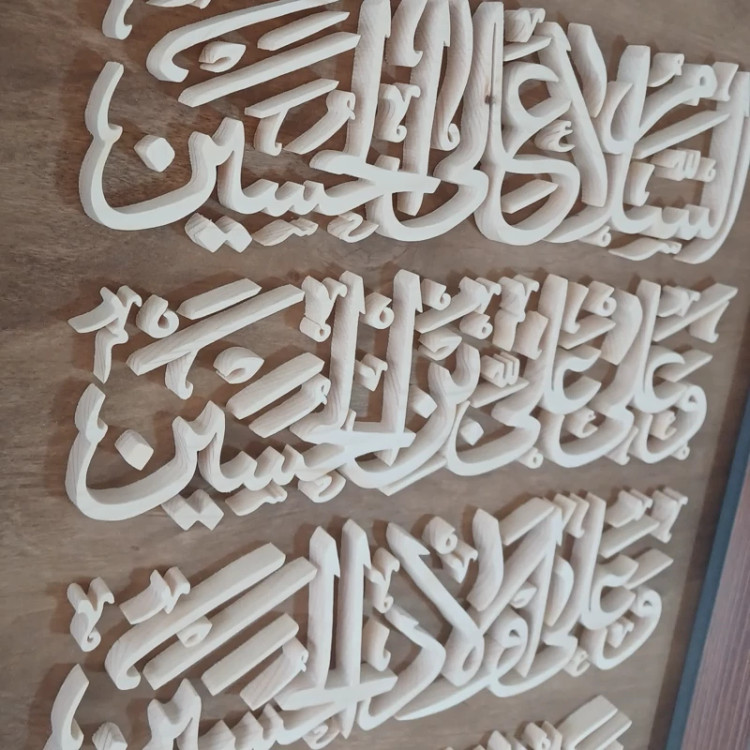 السَّلامُ عَلَى الحُسَيْنِ
وَعَلى عَلِيِّ بْنِ الحُسَيْنِ
وَعَلى أَوْلادِ الحُسَيْنِ